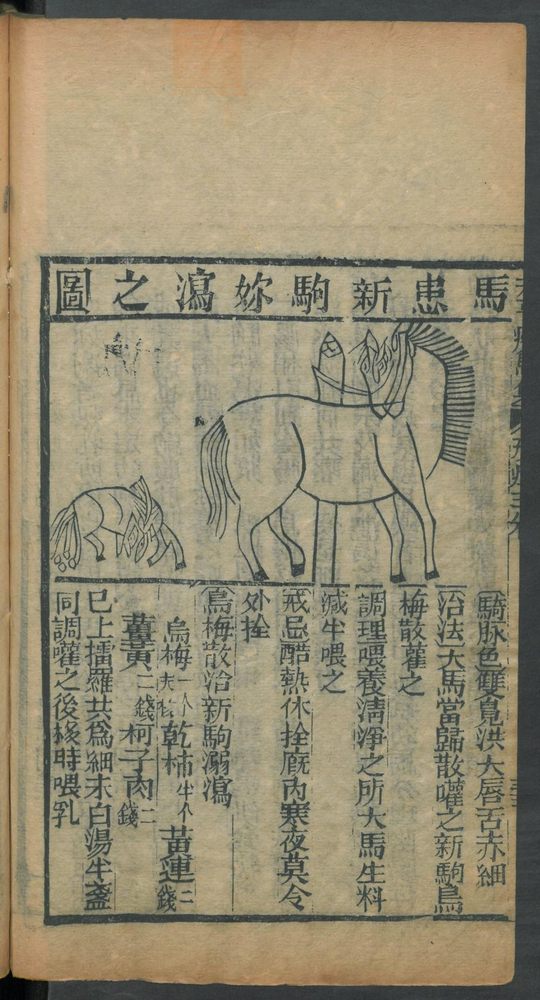 馬患新駒妳瀉之圖
騎脉色雙鳬洪大唇舌赤細
治法大馬當歸散嚾之新駒烏
梅散嚾之
調理喂養淸淨之所大馬生料
減半喂之
戒忌酷熱休拴厩內寒夜莫令
外拴
烏梅散治新駒溺瀉
烏梅一个去核乾柿半个黃連二錢
薑黃二錢柯子肉二錢
已上擂羅共爲細末白湯半盞
同調嚾之後移時喂乳